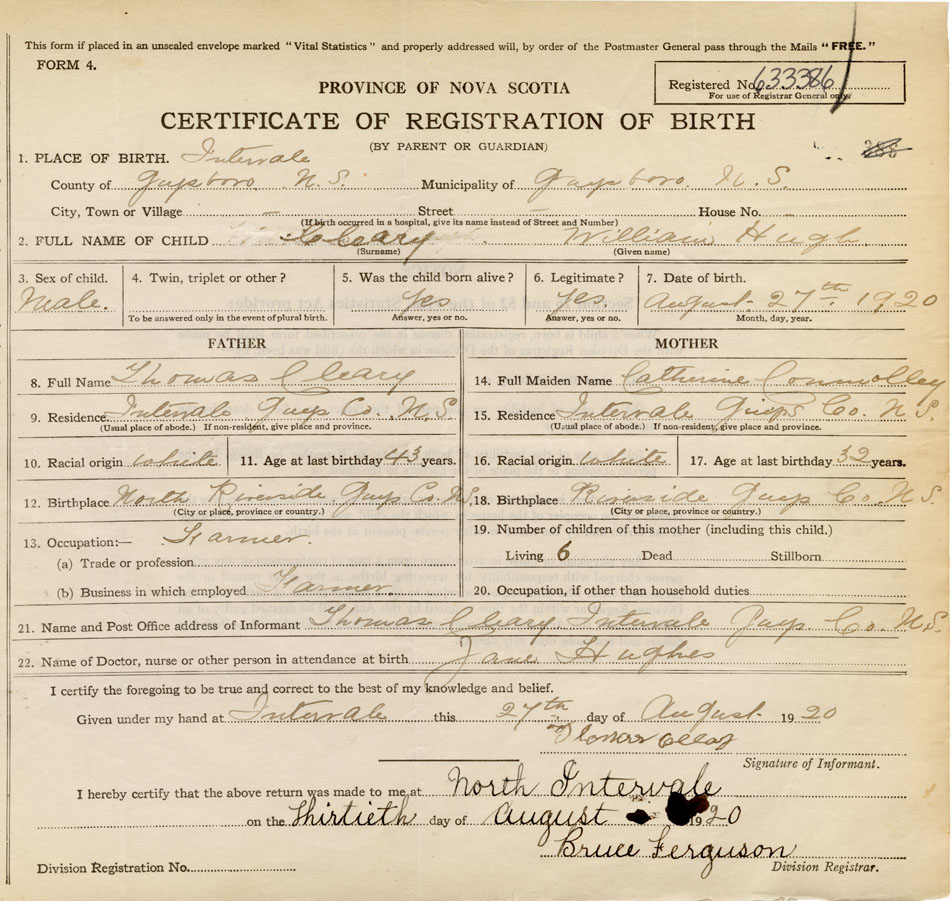 This form if placed in an unsealed envelope marked "Vital Statistics" and properly addressed will, by order of the Postmaster General pass through the Mails "FREE."
FORM 4.
PROVINCE OF NOVA SCOTIA
Registered No. 633386
For use of Registrar General only.
CERTIFICATE OF REGISTRATION OF BIRTH
(BY PARENT OR GUARDIAN)
1. PLACE OF BIRTH. Intervale
County of Guysboro N.S. Municipality of Guysboro. N.S.
City, Town or Village — Street — House No. —
(If birth occurred in a hospital, give its name instead of Street and Number)
2. FULL NAME OF CHILD Cleary William Hugh
(Surname) (Given name)
3. Sex of child. 4. Twin, triplet or other? 5. Was the child born alive? 6. Legitimate? 7. Date of birth.
Male. Yes Yes. August. 27th 1920
To be answered only in the event of plural birth. Answer, yes or no. Answer, yes or no. Month, day, year.
FATHER MOTHER
8. Full Name Thomas Cleary 14. Full Maiden Name Catherine Connolley
9. Residence. Intervale Guys Co. N.S. 15. Residence Intervale Guys Co. N.S.
(Usual place of abode.) If non-resident, give place and province. (Usual place of abode.) If non-resident, give place and province.
10. Racial origin white 11. Age at last birthday 43 years. 16. Racial origin white 17. Age at last birthday 32 years.
12. Birthplace North Riverside Guys Co. N.S. 18. Birthplace Riverside Guys Co. N.S.
(City or place, province or country.) (City or place, province or country.)
13. Occupation:— Farmer. 19. Number of children of this mother (including this child.)
(a) Trade or profession Living 6 Dead Stillborn
(b) Business in which employed Farmer. 20. Occupation, if other than household duties
21. Name and Post Office address of Informant Thomas Cleary Intervale Guys Co. N.S.
22. Name of Doctor, nurse or other person in attendance at birth Jane Hughes
I certify the foregoing to be true and correct to the best of my knowledge and belief.
Given under my hand at Intervale this 27th day of August 1920
Signature of Informant.
I hereby certify that the above return was made to me at North Intervale
on the Thirtieth day of August 1920
Bruce Ferguson
Division Registration No. Division Registrar.